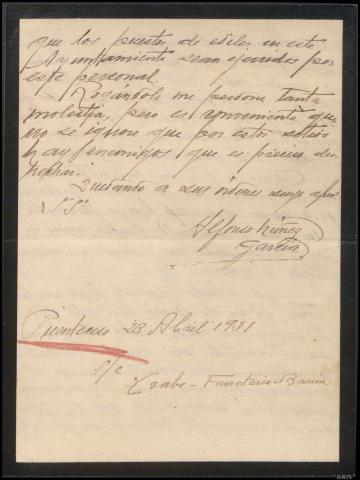 que los puestos de ediles en este
Ayuntamiento sean ejercidos por
este personal.
Rogándole me perdone tanta
molestia, pero es conveniente que
no se ignore que por estos sitios
hay enemigos que es preciso des
hechar.
Quedando a sus órdenes
S. S.
Alfonso Núñez
García
28 Abril 1931
s/c